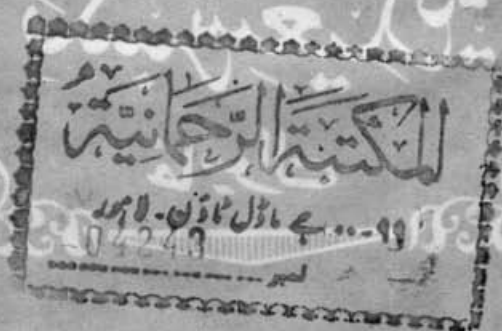 المَكْتَبَةُ الرَّحْمَانِيَّةُ
۹۹-... جے ماڈل ٹاؤن۔ لاہور
04243
نمبر